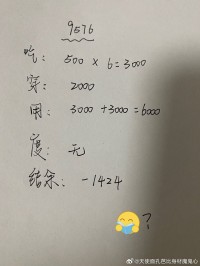 9576
吃: 500 × 6=3000
穿: 2000
用: 3000 +3000=6000
度: 无
结余: -1424
?
@天使面孔芭比身材魔鬼心